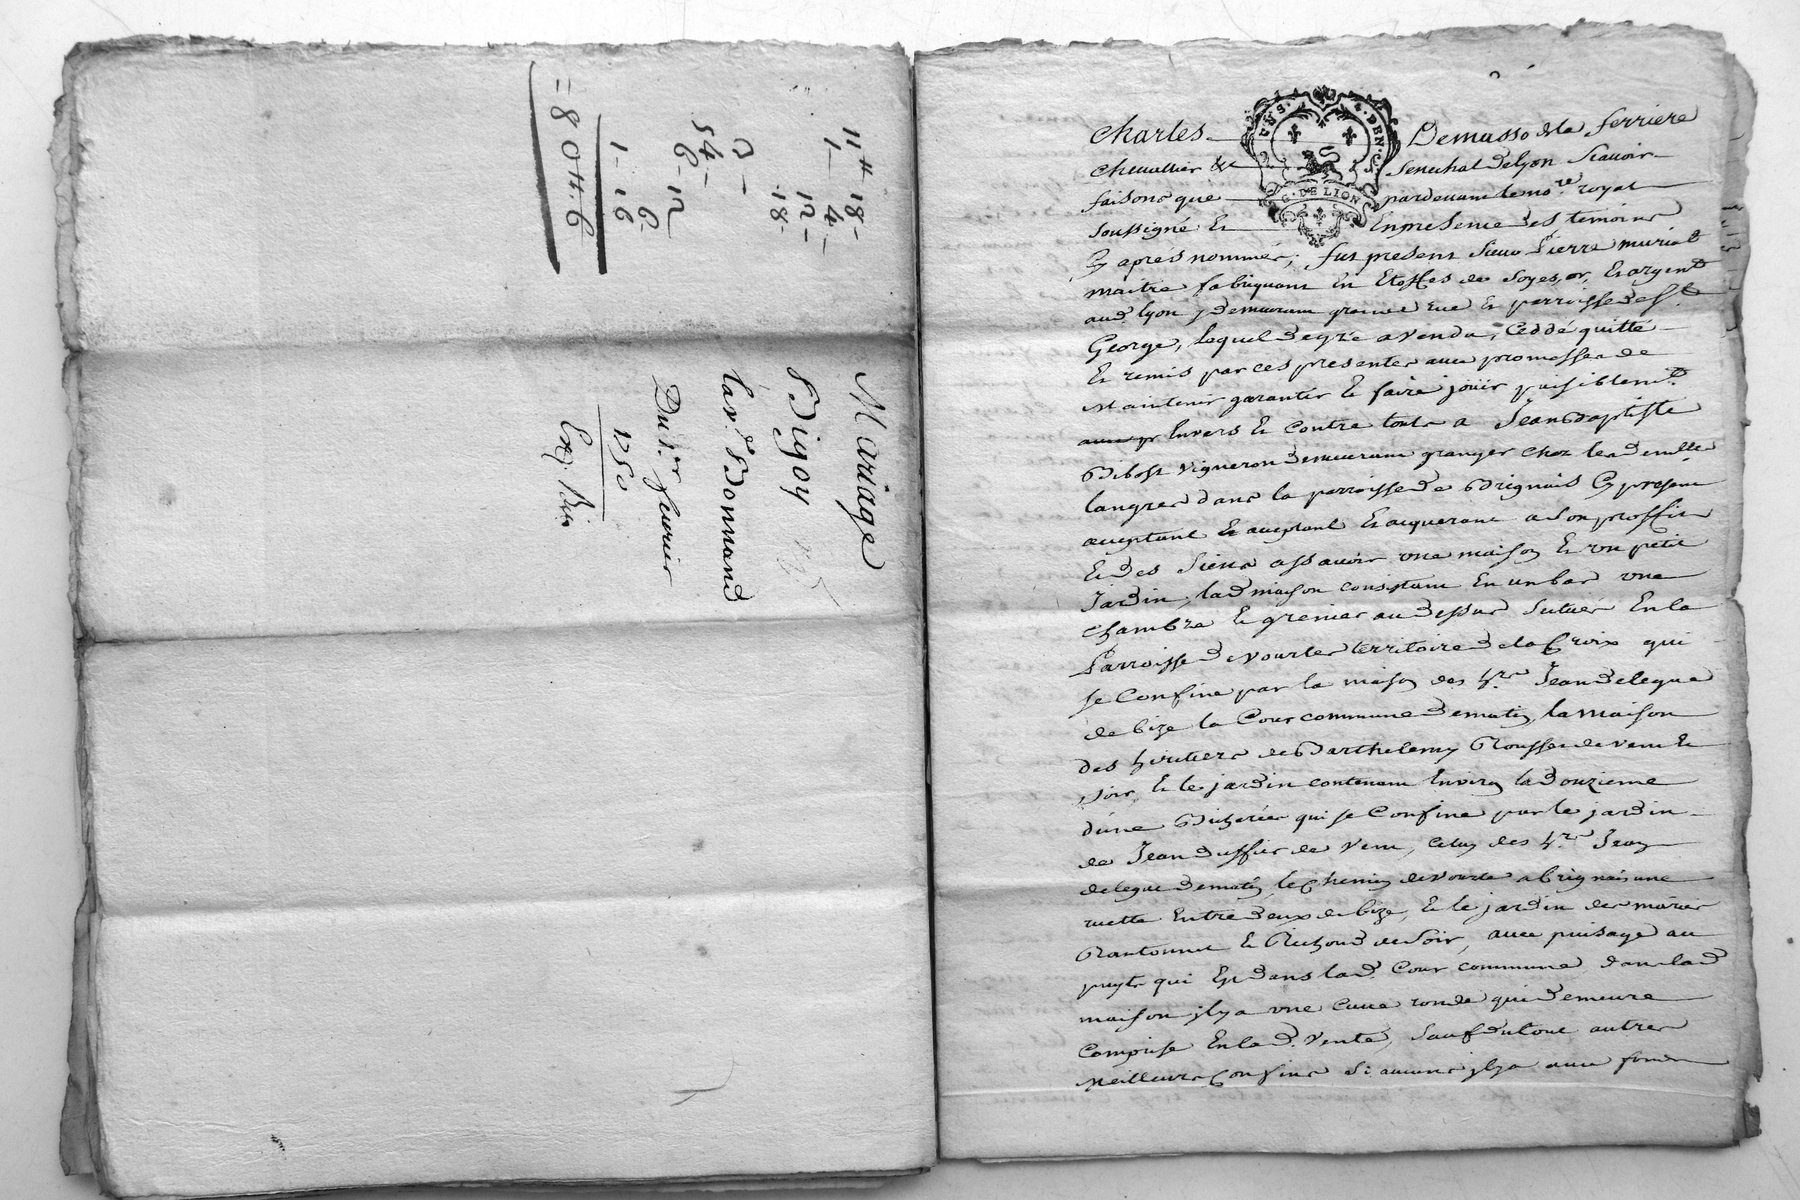 11 ₶ 18 -
1 - 4 -
12 -
18.
2 -
54 -
6 - 12
6.
1 - 16
= 80 ₶. 6
Mariage
Bigoy
lad. Bonnand
Du 1er feurier
1750
Exp. Bis
UN S. 4. DEN.
G. DE LION
Charles Demasso dela ferriere
Cheuallier &c Senechal delyon Scauoir
faisons que pardeuant le no.re royal
soussigné Et En presence des temoins
Cy aprés nommés, fut present Sieur Pierre muriat
maitre fabriquant En Etoffes de Soyes, or, Et argent
aud. lyon y demeurant grande rue Et parroisse de St
George, lequel de gré a vendu, Ceddé quitté
Et remis par ces presentes auec promesse de
Maintenir garantir Et faire joüir paisiblemt
Enuers Et Contre tous a Jean Baptiste
Bibost vigneron demeurant granger chez les demelles
langres dans la parroisse de Brignais Cy present
acceptant Et acquerant a son proffit
Et des Siens assauoir vne maison Et vn petit
Jardin, lad. maison consistant En un bas vne
Chambre Et grenier au dessus Scitués En la
Parroisse de Vourles territoire dela Croix qui
se Confine par la maison des h.rs Jean delegue
de bize la Cour commune de matin, la maison
des héritiers de Barthelemy Rousset de vent Et
Soir, Et le jardin contenant Enuiron la douzieme
d'une Bicherée qui se Confine par le jardin
de Jean dussuc de vent, celuy des h.rs Jean
delegue de matin, le Chemin de vourles a brignais une
ruette Entre deux de bize, Et le jardin des mariés
Rantonnet Et Richoud de Soir, auec puisage au
puyts qui Est dans lad. Cour commune, dans lad.
maison il y a vne Cuue ronde qui demeure
Comprise En lad. Vente, Sauf du tout autres
Meilleurs Confins Si aucuns il y a auec fonds